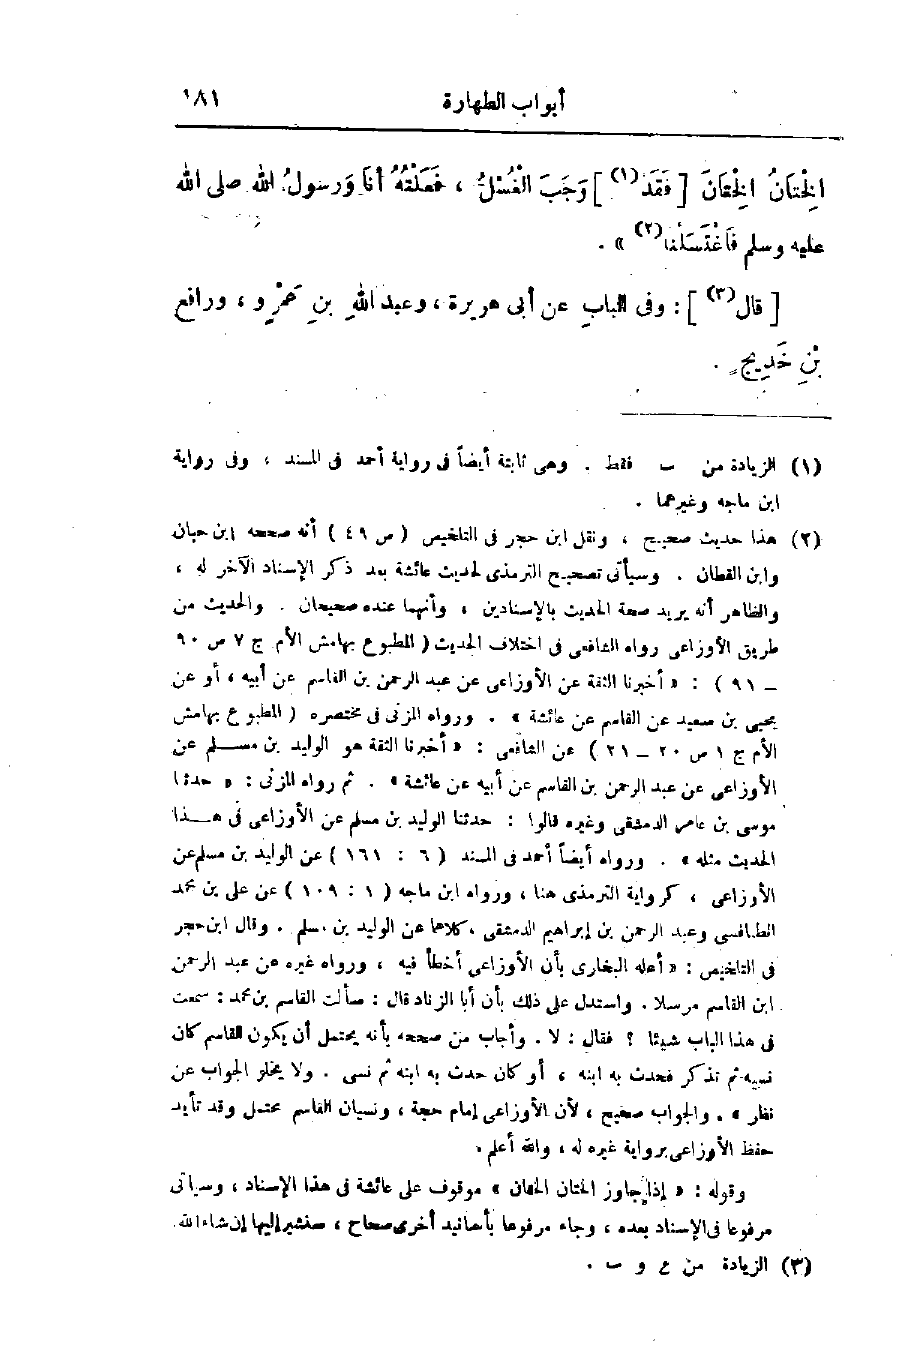 أبواب الطهارة ١٨١
الْخِتَانُ الْخِتَانَ [ فَقَدْ (١) ] وَجَبَ الْغُسْلُ ، فَعَلْتُهُ أَنَا وَرسولُ الله صلى الله
عليه وسلم فَاغْتَسَلْنَا (٢) » .
[ قال (٣) ] : وفى البابِ عن أبى هريرة ، وعبد اللهِ بنِ عَمْرٍو ، ورافع
بْنِ خَدِيجٍ .
(١) الزيادة من ب فقط . وهى ثابتة أيضاً فى رواية أحمد فى المسند ، وفى رواية
ابن ماجه وغيرهما .
(٢) هذا حديث صحيح ، ونقل ابن حجر فى التلخيص ( ص ٤٩ ) أنه صححه ابن حبان
وابن القطان . وسيأتى تصحيح الترمذى لحديث عائشة بعد ذكر الإسناد الآخر له ،
والظاهر أنه يريد صحة الحديث بالإسنادين ، وأنهما عنده صحيحان . والحديث من
طريق الأوزاعى رواه الشافعى فى اختلاف الحديث ( المطبوع بهامش الأم ج ٧ ص ٩٠
ــ ٩١ ) : « أخبرنا الثقة عن الأوزاعى عن عبد الرحمن بن القاسم عن أبيه ، أو عن
يحيى بن سعيد عن القاسم عن عائشة » . ورواه المزنى فى مختصره ( المطبوع بهامش
الأم ج ١ ص ٢٠ ــ ٢١ ) عن الشافعى : « أخبرنا الثقة هو الوليد بن مســلم عن
الأوزاعى عن عبد الرحمن بن القاسم عن أبيه عن عائشة » . ثم رواه المزنى : « حدثنا
موسى بن عامر الدمشقى وغيره قالوا : حدثنا الوليد بن مسلم عن الأوزاعى فى هــذا
الحديث مثله » . ورواه أيضاً أحمد فى المسند ( ٦ : ١٦١ ) عن الوليد بن مسلم عن
الأوزاعى ، كرواية الترمذى هنا ، ورواه ابن ماجه ( ١ : ١٠٩ ) عن على بن محمد
الطنافسى وعبد الرحمن بن إبراهيم الدمشقى ، كلاهما عن الوليد بن مسلم . وقال ابن حجر
فى التلخيص : « أعله البخارى بأن الأوزاعى أخطأ فيه ، ورواه غيره عن عبد الرحمن
ابن القاسم مرسلا . واستدل على ذلك بأن أبا الزناد قال : سألت القاسم بن محمد : سمعت
فى هذا الباب شيئا ؟ فقال : لا . وأجاب من صححه بأنه يحتمل أن يكون القاسم كان
نسيه ثم تذكر فحدث به ابنه ، أو كان حدث به ابنه ثم نسى . ولا يخلو الجواب عن
نظر » . والجواب صحيح ، لأن الأوزاعى إمام حجة ، ونسيان القاسم محتمل وقد تأيد
حفظ الأوزاعى برواية غيره له ، والله أعلم .
وقوله : « إذا جاوز الختان الختان » موقوف على عائشة فى هذا الإسناد ، وسيأتى
مرفوعا فى الإسناد بعده ، وجاء مرفوعا بأسانيد أخرى صحاح ، سنشير إليها إن شاء الله.
(٣) الزيادة من ع و ب .